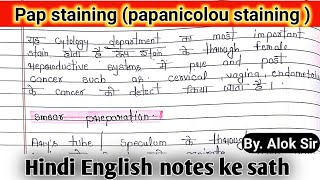 Pap staining (papanicolou staining )
यह cytology department का most important
stain होता है इस stain के through female
reproductive systems में pre and post
cancer such as: cervical, vagina, endometrial
के cancer को detect किया जाता है।
smear preparation:
Ary's tube / speculum के through
By. Alok Sir
Hindi English notes ke sath